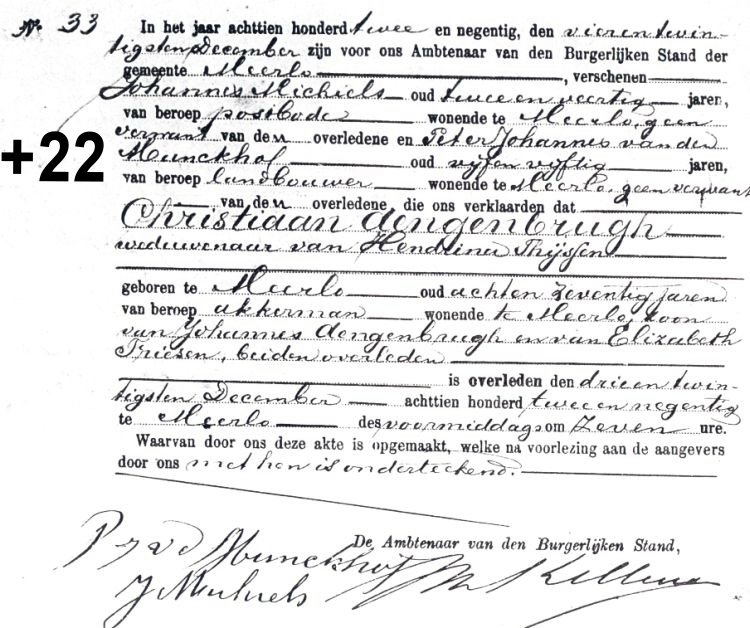 No 33 In het jaar achttien honderd twee en negentig, den vieren twin-
tigsten December zijn voor ons Ambtenaar van den Burgerlijken Stand der
gemeente Meerlo, verschenen
Johannes Michiels oud twee en veertig jaren,
van beroep postbode wonende te Meerlo, geen
verwant van den overledene en Peter Johannes van den
+22
Munckhof oud vijf en vijftig jaren,
van beroep landbouwer wonende te Meerlo, geen verwant
van den overledene, die ons verklaarden dat
Christiaan Aengenbrugh
weduwenaar van Hendrina Thijssen
geboren te Meerlo oud acht en zeventig jaren
van beroep akkerman wonende te Meerlo, zoon
van Johannes Aengenbrugh en van Elizabeth
Triesen, beiden overleden
is overleden den drie en twin-
tigsten December achttien honderd twee en negentig
te Meerlo des voormiddags om zeven ure.
Waarvan door ons deze akte is opgemaakt, welke na voorlezing aan de aangevers
door ons met hen is onderteekend.
De Ambtenaar van den Burgerlijken Stand,
P J v d Munckhof
J Michiels